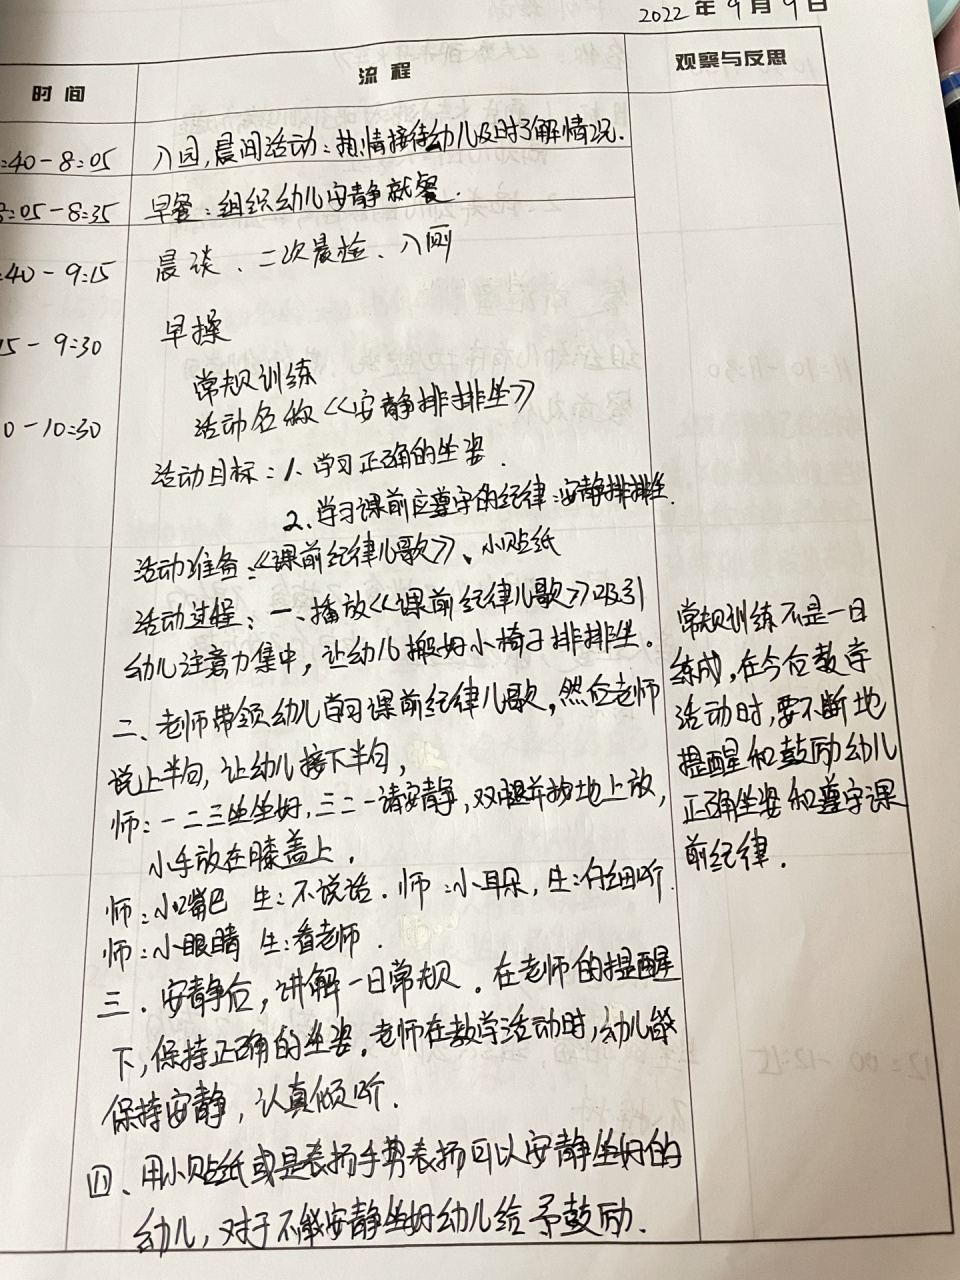 2022年9月9日
时间 流程 观察与反思
:40-8:05 入园,晨间活动:热情接待幼儿及时了解情况.
8:05-8:35 早餐:组织幼儿安静就餐.
:40-9:15 晨谈、二次晨检、入厕
5-9:30 早操
常规训练
0-10:30 活动名称《安静排排坐》
活动目标:1.学习正确的坐姿.
2.学习课前应遵守的纪律:安静排排坐.
活动准备:《课前纪律儿歌》、小贴纸
活动过程:一、播放《课前纪律儿歌》吸引
幼儿注意力集中,让幼儿搬好小椅子排排坐.
二、老师带领幼儿学习课前纪律儿歌,然后老师
说上半句,让幼儿接下半句,
师:一二三坐坐好,三二一请安静,双腿并拢地上放,
小手放在膝盖上.
师:小嘴巴 生:不说话.师:小耳朵,生:仔细听.
师:小眼睛 生:看老师.
三.安静后,讲解一日常规.在老师的提醒
下,保持正确的坐姿.老师在教学活动时,幼儿能
保持安静,认真倾听.
四、用小贴纸或是表扬手势表扬可以安静坐好的
幼儿,对于不能安静坐好幼儿给予鼓励.
常规训练不是一日
练成,在今后教学
活动时,要不断地
提醒和鼓励幼儿
正确坐姿和遵守课
前纪律.